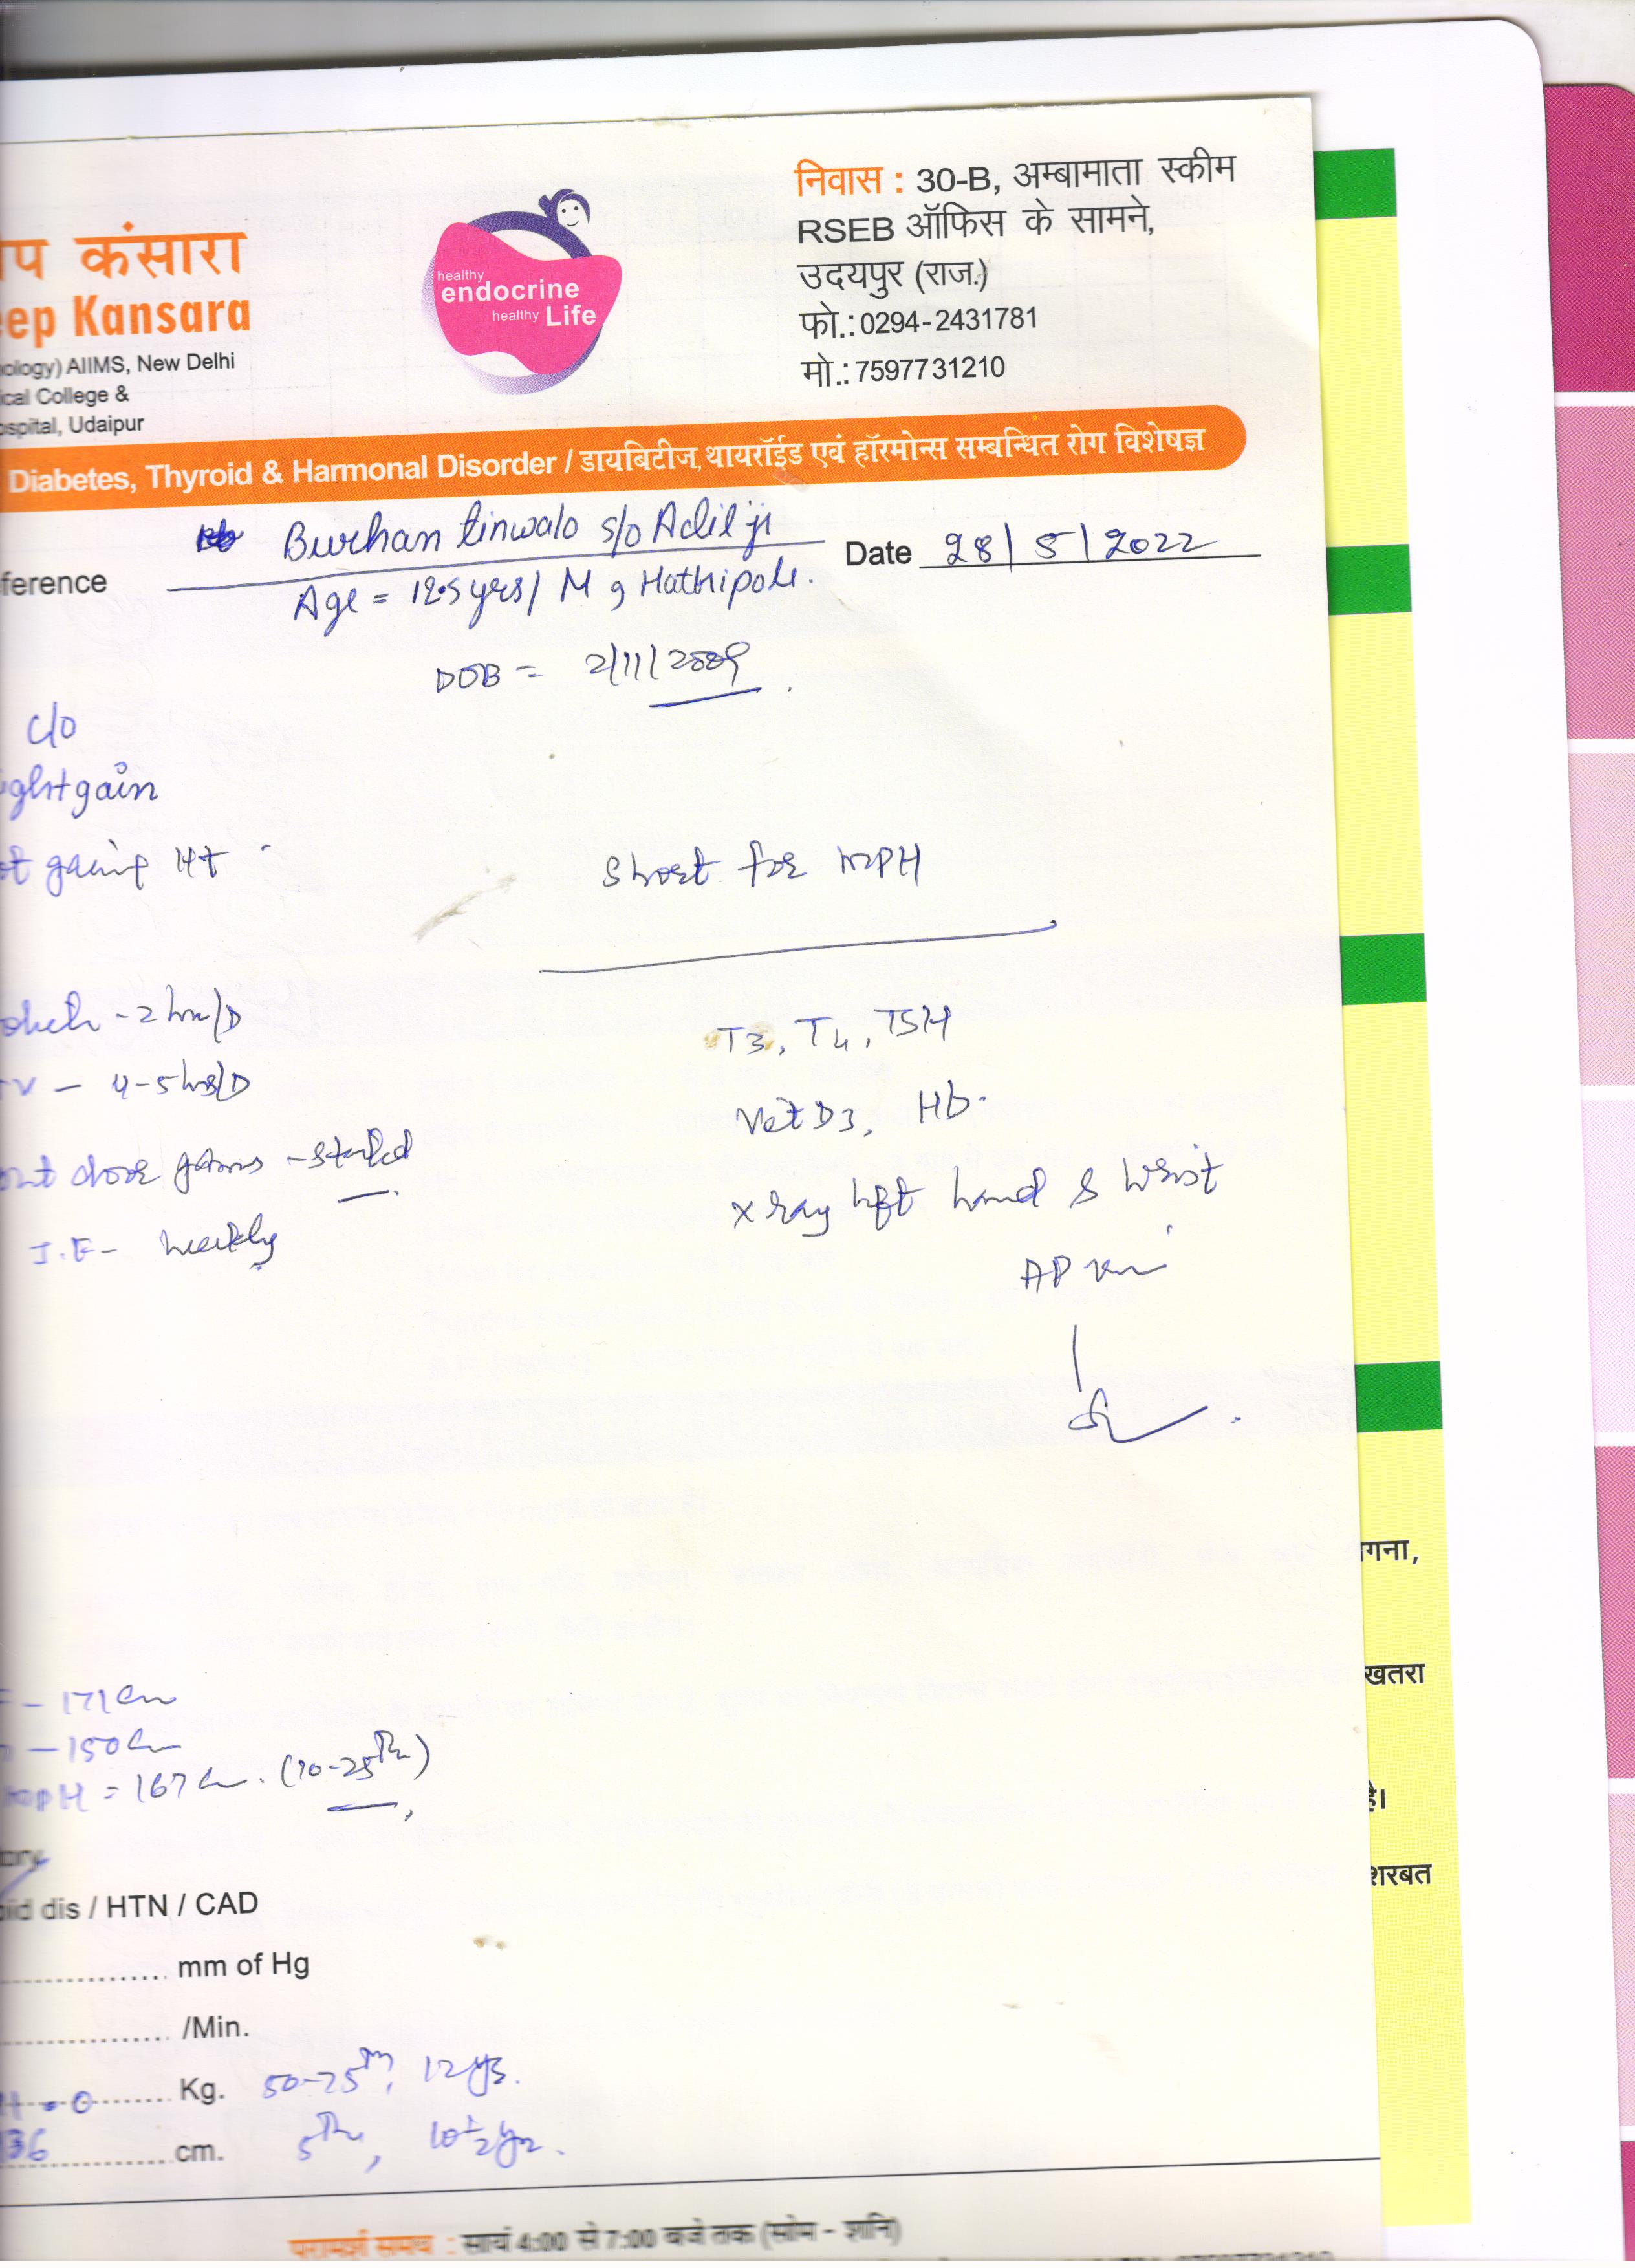 निवास : 30-B, अम्बामाता स्कीम
RSEB ऑफिस के सामने,
उदयपुर (राज.)
फो.: 0294-2431781
मो.: 7597731210
ीप कंसारा
eep Kansara
ology) AIIMS, New Delhi
ical College &
ospital, Udaipur
healthy
endocrine
healthy Life
Diabetes, Thyroid & Harmonal Disorder / डायबिटीज, थायरॉईड एवं हॉरमोन्स सम्बन्धित रोग विशेषज्ञ
ference
Burhan tinwala s/o Adil ji
Date 28/5/2022
Age = 12.5 yrs/ M, Hathipole.
DOB = 2/11/2009
c/o
ight gain
ot gaing Ht
Short for MPH
- 2 hrs/D
TV - 4-5 hrs/D
out door games - started
J.F - weekly
T3, T4, TSH
Vit D3, Hb.
x ray left hand & Wrist
AP
- 171 cm
- 150 cm
MPH = 167 cm. (10-25th)
ory
oid dis / HTN / CAD
mm of Hg
/Min.
41.0 Kg. 50-75th, 12 yrs.
136 cm. 5th, 10½ yrs.
परामर्श समय : सायं 4:00 से 7:00 बजे तक (सोम - शनि)
गना,
खतरा
है।
शरबत